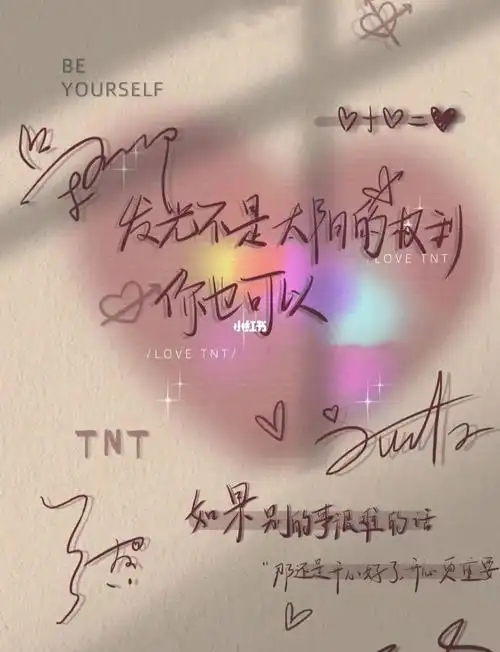 BE
YOURSELF
♡+♡=♥
发光不是太阳的权利
/LOVE TNT
你也可以
小红书
/LOVE TNT/
TNT
如果别的事很难的话
“那还是开心好了,开心更重要